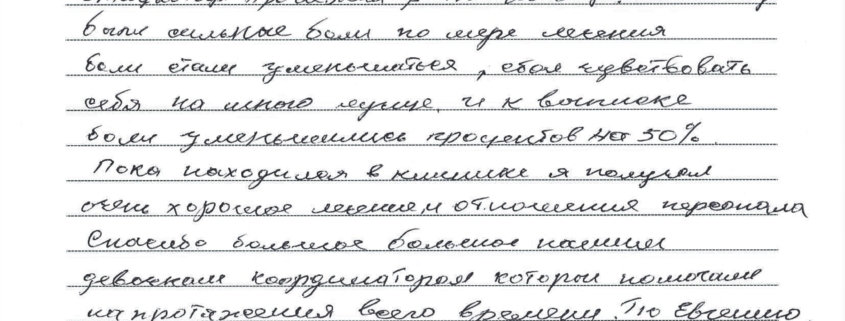 были сильные боли по мере лечения
боли стали уменьшаться, стал чувствовать
себя на много лучше. и к выписке
боли уменьшились процентов на 50%.
Пока находился в клинике я получал
очень хорошое лечение и отношения персонала
Спасибо большое большое нашим
девочкам координаторам которы помогали
на протяжения всего времени.